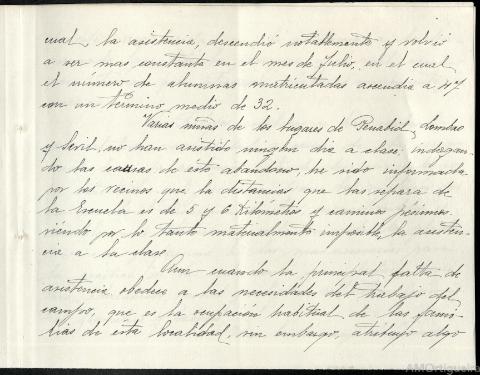 cual, la asistencia, descendió notablemente y volvió
a ser mas constante en el mes de Julio, en el cual
el número de alumnas matriculadas ascendia a 47
con un término medio de 32.
Varias niñas de los lugares de Penabad, Lombao
y Sivil, no han asistido ningun dia a clase; indagan-
do las causas de este abandono, he sido informada
por los vecinos que la distancia que las separa de
la Escuela es de 5 y 6 Kilómetros y caminos pésimos
siendo por lo tanto materialmente imposible, la asisten-
cia a la clase.
Aun cuando la principal falta de
asistencia obedece a las necesidades del trabajo del
campo, que es la ocupación habitual de las fami-
lias de esta localidad, sin embargo, atribuyo algo
AMOrtigueira